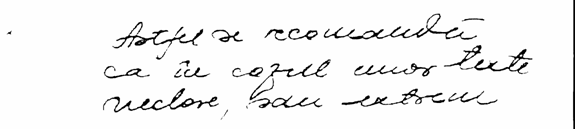 Astfel se recomandă
ca în cazul unor texte
neclare, sau extrem